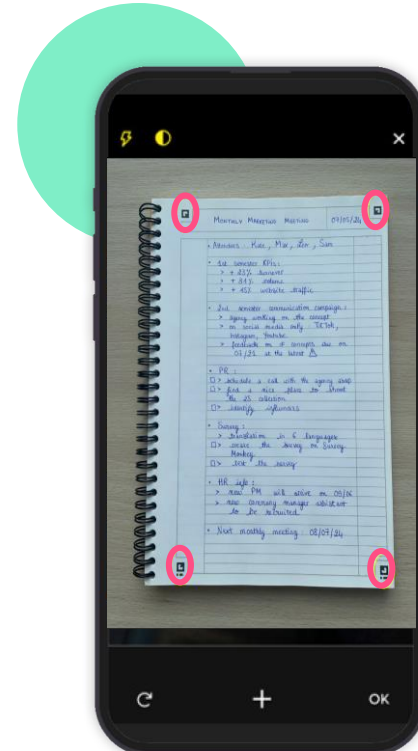 MONTHLY MARKETING MEETING 07/05/24
• Attendees : Kate, Max, Zoe, Sam
• 1st semester KPIs :
> + 23% turnover
> + 31%
> + 45% website traffic
• 2nd semester communication campaign :
> agency working on the concept
> on social media only : TikTok,
Instagram, Youtube
> feedback on # concepts due on
07/29 at the latest ⚠
• PR :
☐> schedule a call with the agency
☐> find a nice place to shoot
the 25 collection
☐> identify influencers
• Survey :
> translation in 6 languages
☐> the survey on Survey
Monkey
☐> test the survey
• HR info :
> new PM will arrive on 09/16
> new community manager assistant
to be recruited
• Next monthly meeting : 08/07/24
OK